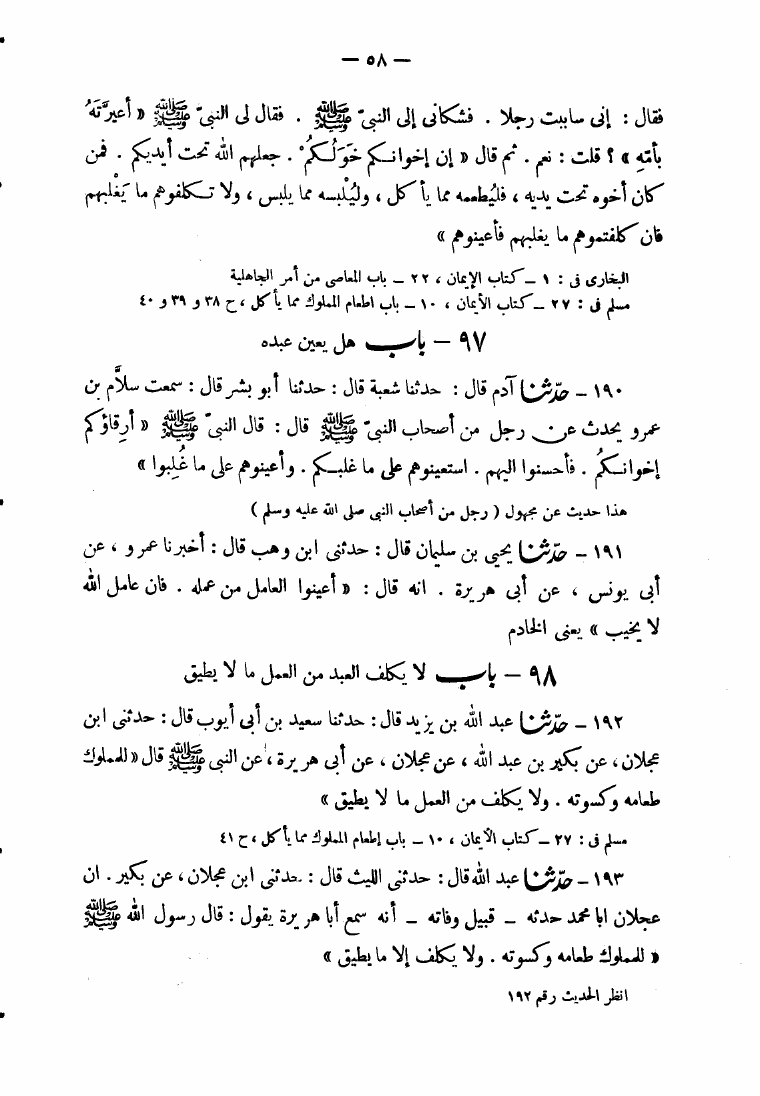 — ٥٨ —
فقال : إنى ساببت رجلا . فشكانى إلى النبىّ ﷺ . فقال لى النبىّ ﷺ « أعيرَّتَهُ
بأمّهِ » ؟ قلت : نعم . ثم قال « إن إخوانكم خَوَلُكُمْ . جعلهم الله تحت أيديكم . فمن
كان أخوه تحت يديه ، فليُطعمه مما يأكل ، وليُلْبسه مما يلبس ، ولا تكلفوهم ما يَغْلبهم
فان كلفتموهم ما يغلبهم فأعينوهم »
البخارى فى : ١ – كتاب الإيمان ، ٢٢ – باب المعاصى من أمر الجاهلية
مسلم فى : ٢٧ – كتاب الأيمان ، ١٠ – باب اطعام المملوك مما يأكل ، ح ٣٨ و ٣٩ و ٤٠
٩٧ – باب هل يعين عبده
١٩٠ – حدّثنا آدم قال : حدثنا شعبة قال : حدثنا أبو بشر قال : سمعت سلاَّم بن
عمرو يحدث عن رجل من أصحاب النبىّ ﷺ قال : قال النبىّ ﷺ « أرقاؤكم
إخوانكُم . فأحسنوا اليهم . استعينوهم على ما غلبكم . وأعينوهم على ما غُلِبوا »
هذا حديث عن مجهول ( رجل من أصحاب النبى صلى الله عليه وسلم )
١٩١ – حدّثنا يحيى بن سليمان قال : حدثنى ابن وهب قال : أخبرنا عمرو ، عن
أبى يونس ، عن أبى هريرة . انه قال : « أعينوا العامل من عمله . فان عامل الله
لا يخيب » يعنى الخادم
٩٨ – باب لا يكلف العبد من العمل ما لا يطيق
١٩٢ – حدّثنا عبد الله بن يزيد قال : حدثنا سعيد بن أبى أيوب قال : حدثنى ابن
عجلان ، عن بكير بن عبد الله ، عن عجلان ، عن أبى هريرة ، عن النبى ﷺ قال « للمملوك
طعامه وكسوته . ولا يكلف من العمل ما لا يطيق »
مسلم فى : ٢٧ – كتاب الأيمان ، ١٠ – باب إطعام المملوك مما يأكل ، ح ٤١
١٩٣ – حدّثنا عبد الله قال : حدثنى الليث قال : حدثنى ابن عجلان ، عن بكير . ان
عجلان ابا محمد حدثه – قبيل وفاته – أنه سمع أبا هريرة يقول : قال رسول الله ﷺ
« للمملوك طعامه وكسوته . ولا يكلف إلا ما يطيق »
انظر الحديث رقم ١٩٢